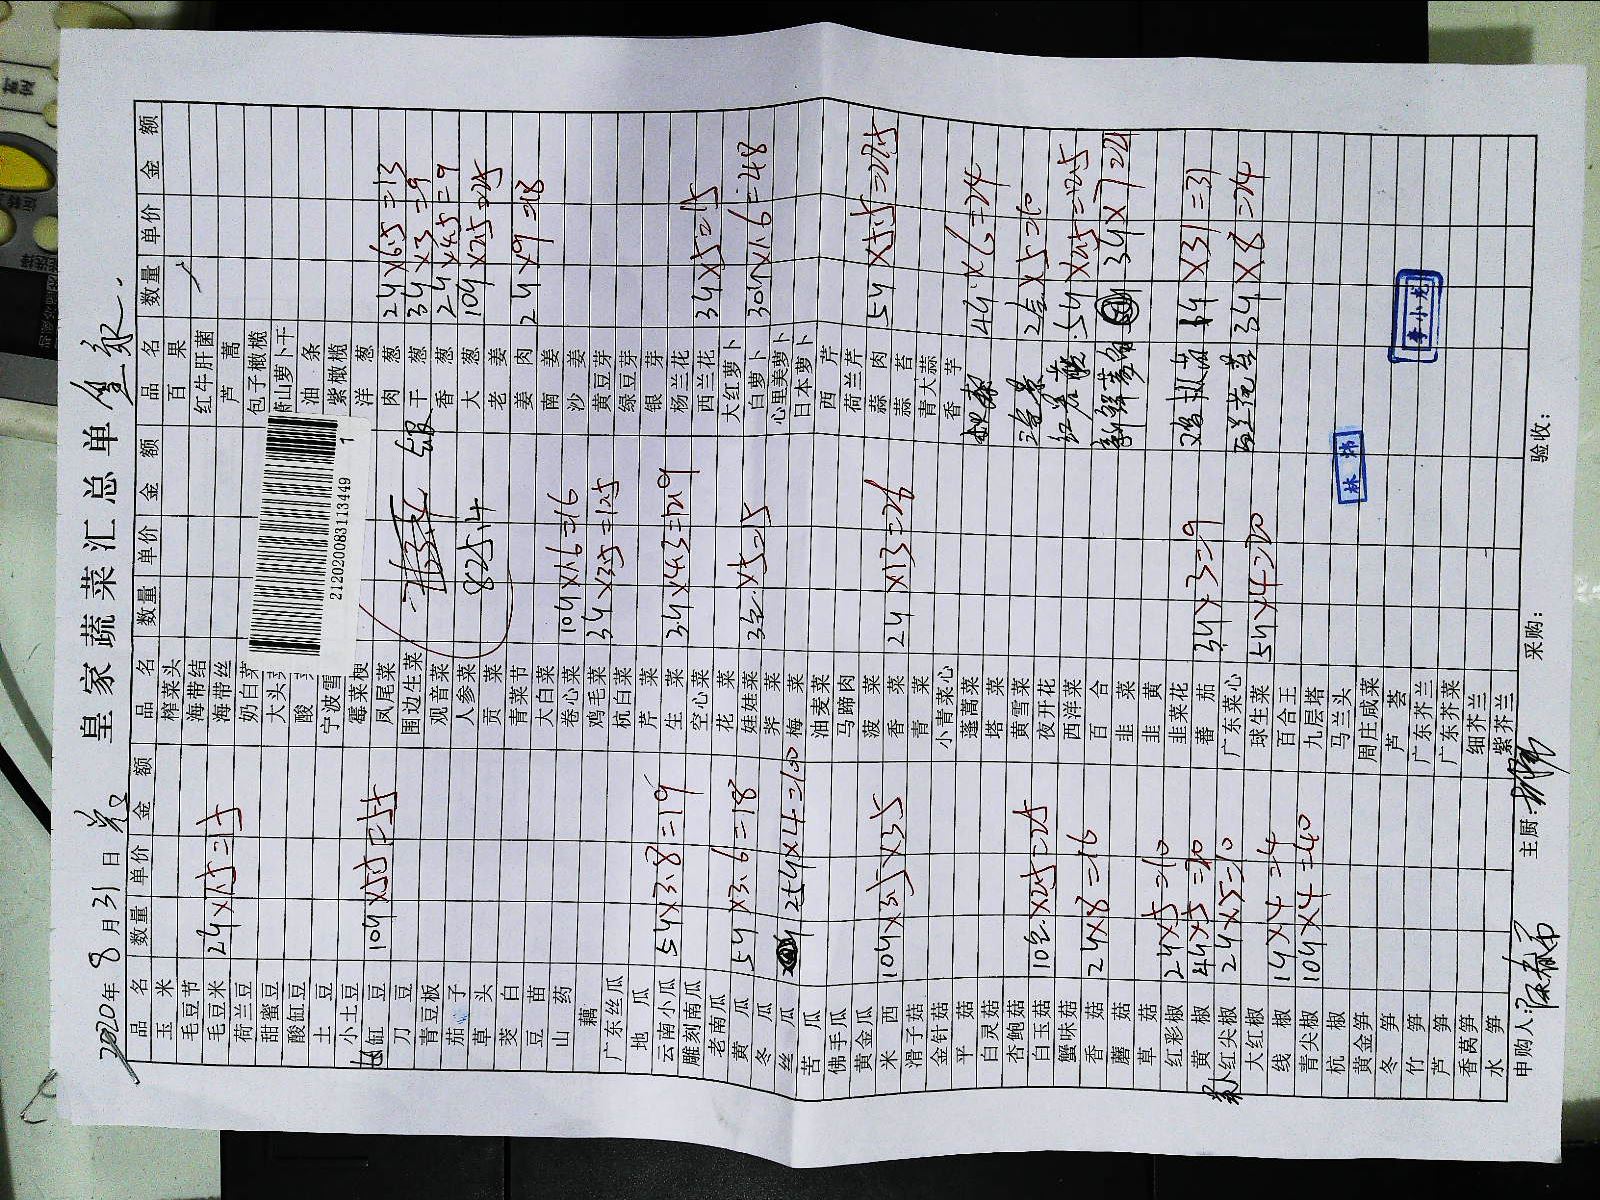 皇家蔬菜汇总单
2020年8月31日
品名 数量 单价 金额 品名 数量 单价 金额 品名 数量 单价 金额
玉米 榨菜头 百果
毛豆节 海带结 红牛肝菌
毛豆米 2斤×7.5=15 海带丝 芦蒿
荷兰豆 奶白菜 包子橄榄
甜蜜豆 大头 萧山萝卜干
酸缸豆 酸 油条
土豆 宁波雪 紫橄榄
小土豆 霉菜梗 洋葱
缸豆 10斤×5.5=55 凤尾菜 肉葱 2斤×6.5=13
刀豆 围边生菜 干葱 3斤×3=9
青豆板 观音菜 香葱 2斤×4.5=9
茄子 人参菜 825.4 大葱 10斤×2.5=25
草头 贡菜 老姜
茭白 青菜节 姜肉 2斤×9=18
豆苗 大白菜 南姜
山药 卷心菜 10斤×1.6=16 沙姜
藕 鸡毛菜 3斤×3.5=12.5 黄豆芽
广东丝瓜 杭白菜 绿豆芽
地瓜 芹菜 银芽
云南小瓜 5斤×3.8=19 生菜 3斤×4.3=12.9 杨兰花
雕刻南瓜 空心菜 西兰花 3斤×5=15
老南瓜 花菜 大红萝卜
黄瓜 5斤×3.6=18 娃娃菜 3包×5=15 白萝卜 30斤×1.6=48
冬瓜 荠菜 心里美萝卜
丝瓜 25斤×4=100 梅菜 日本萝卜
苦瓜 油麦菜 西芹
佛手瓜 马蹄肉 荷兰芹
黄金瓜 菠菜 蒜肉 5斤×5.5=27.5
米西 10斤×3.5×35 香菜 2斤×13=26 蒜苔
滑子菇 青菜 青大蒜
金针菇 小青菜心 香芋
平菇 蓬蒿菜 4斤×6=24
白灵菇 塔菜
杏鲍菇 黄雪菜 2包×5=10
白玉菇 10包×2.5=25 夜开花
蟹味菇 西洋菜 5斤×2.5=12.5
香菇 2斤×8=16 百合 3斤×7=21
蘑菇 韭菜
草菇 韭黄
红彩椒 2斤×5=10 韭菜花
黄椒 4斤×5=20 蕃茄 3斤×3=9 1斤×31=31
红尖椒 2斤×5=10 广东菜心
大红椒 球生菜 5斤×4=20 3斤×8=24
线椒 1斤×4=4 百合王
青尖椒 10斤×4=40 九层塔
杭椒 马兰头
黄金笋 周庄咸菜
冬笋 芦荟
竹笋 广东芥兰
芦笋 广东芥菜
香莴笋 细芥兰
水笋 紫芥兰
申购人: 主厨: 采购: 验收:
2120202083113449
1
林炜
李小龙